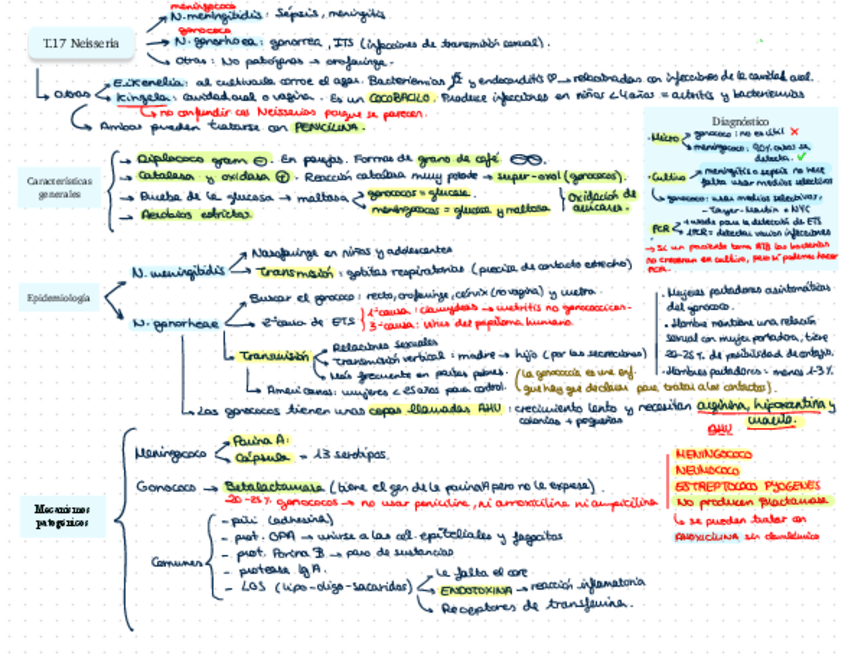 T.17 Neisseria
meningococo
N. meningitidis: Sépsis, meningitis.
gonococo
N. gonorhoea: gonorrea, ITS (infecciones de transmisión sexual).
Otras: No patógenas → orofaringe.
Otras
Eikenella: al cultivarla corroe el agar. Bacteriemias y endocarditis → relacionadas con infecciones de la cavidad oral.
Kingela: cavidad oral o vagina. Es un COCOBACILO. Produce infecciones en niños < 4 años = artritis y bacteriemias
→ no confundir con Neisserias porque se parecen.
Ambas pueden tratarse con PENICILINA.
Características generales
→ Diplococo gram ⊖. En parejas. Formas de grano de café
→ Catalasa y oxidasa ⊕. Reacción catalasa muy potente → super-oxol (gonococos).
→ Prueba de la glucosa → maltosa
gonococos = glucosa.
meningococos = glucosa y maltosa
Oxidación de azúcares.
→ Aerobios estrictos
Diagnóstico
• Micro
gonococo: no es útil ✗
meningococo: 90% casos se detecta. ✓
• Cultivo
meningitis o sepsis no hace falta usar medios selectivos
gonococo: usar medios selectivos,
- Tayer-Martin o NYC
PCR
+ usada para la detección de ETS
1 PCR = detectar varias infecciones
→ Si un paciente toma ATB las bacterias no crecerán en cultivo, pero sí podemos hacer PCR.
Epidemiología
N. meningitidis
Nasofaringe en niños y adolescentes
Transmisión: gotitas respiratorias (precisa de contacto estrecho)
N. gonorheae
Buscar el gonococo: recto, orofaringe, cérvix (no vagina) y uretra.
2ª causa de ETS
1ª causa: clamydeas → uretritis no gonococcicas.
3ª causa: virus del papiloma humano.
Transmisión
Relaciones sexuales
Transmisión vertical: madre → hijo (por las secreciones)
Más frecuente en países pobres.
(la gonococia es una enf. que hay que declarar para tratar a los contactos).
Americanos: mujeres < 25 años para control.
• Mujeres portadoras asintomáticas del gonococo.
• Hombre mantiene una relación sexual con mujer portadora, tiene 20-25% de posibilidad de contagio.
• Hombres portadores: menos 1-3%
Los gonococos tienen unas cepas llamadas AHU: crecimiento lento y necesitan arginina, hipoxantina y uracilo.
colonias + pequeñas
AHU
Mecanismos patogénicos
Meningococo
Porina A:
Cápsula = 13 serotipos.
Gonococo → Betalactamasa (tiene el gen de la porina A pero no la expresa).
20-25% gonococos → no usar penicilina, ni amoxicilina ni ampicilina
Comunes
- pili (adhesina)
- prot. OPA → unirse a las cel. epiteliales y fagocitos
- prot. Porina B → paso de sustancias
- proteasa IgA.
- LOS (lipo-oligo-sacáridos)
Le falta el core
ENDOTOXINA → reacción inflamatoria
Receptores de transferrina.
MENINGOCOCO
NEUMOCOCO
ESTREPTOCOCO PYOGENES
No producen βlactamasa
↳ se pueden tratar con
AMOXICILINA sin clavulánico